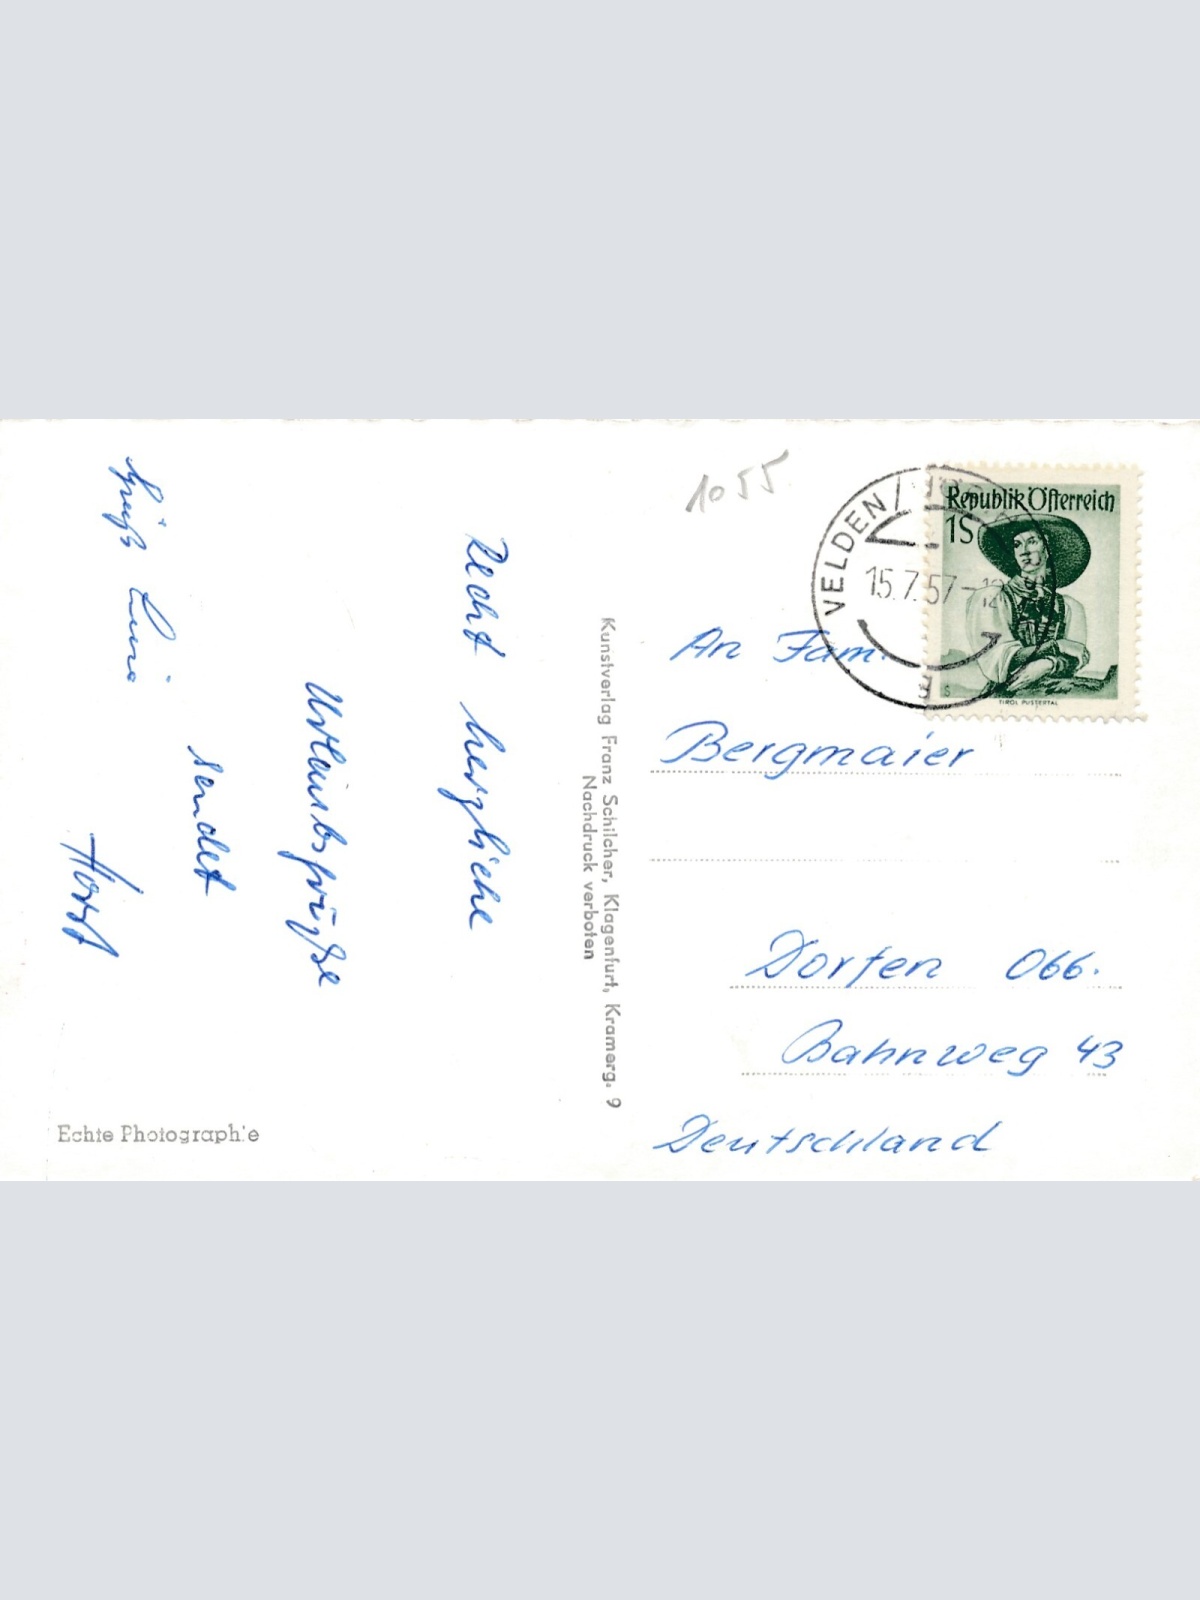 Recht herzliche
Urlaubsgrüße
sendet
Horst
Gruß
Kunstverlag Franz Schilcher, Klagenfurt, Kramerg. 9
Nachdruck verboten
Echte Photographie
1055
VELDEN/
15.7.57-12
Republik Österreich
1S
TIROL PUSTERTAL
An Fam.
Bergmaier
Dorfen Obb.
Bahnweg 43
Deutschland